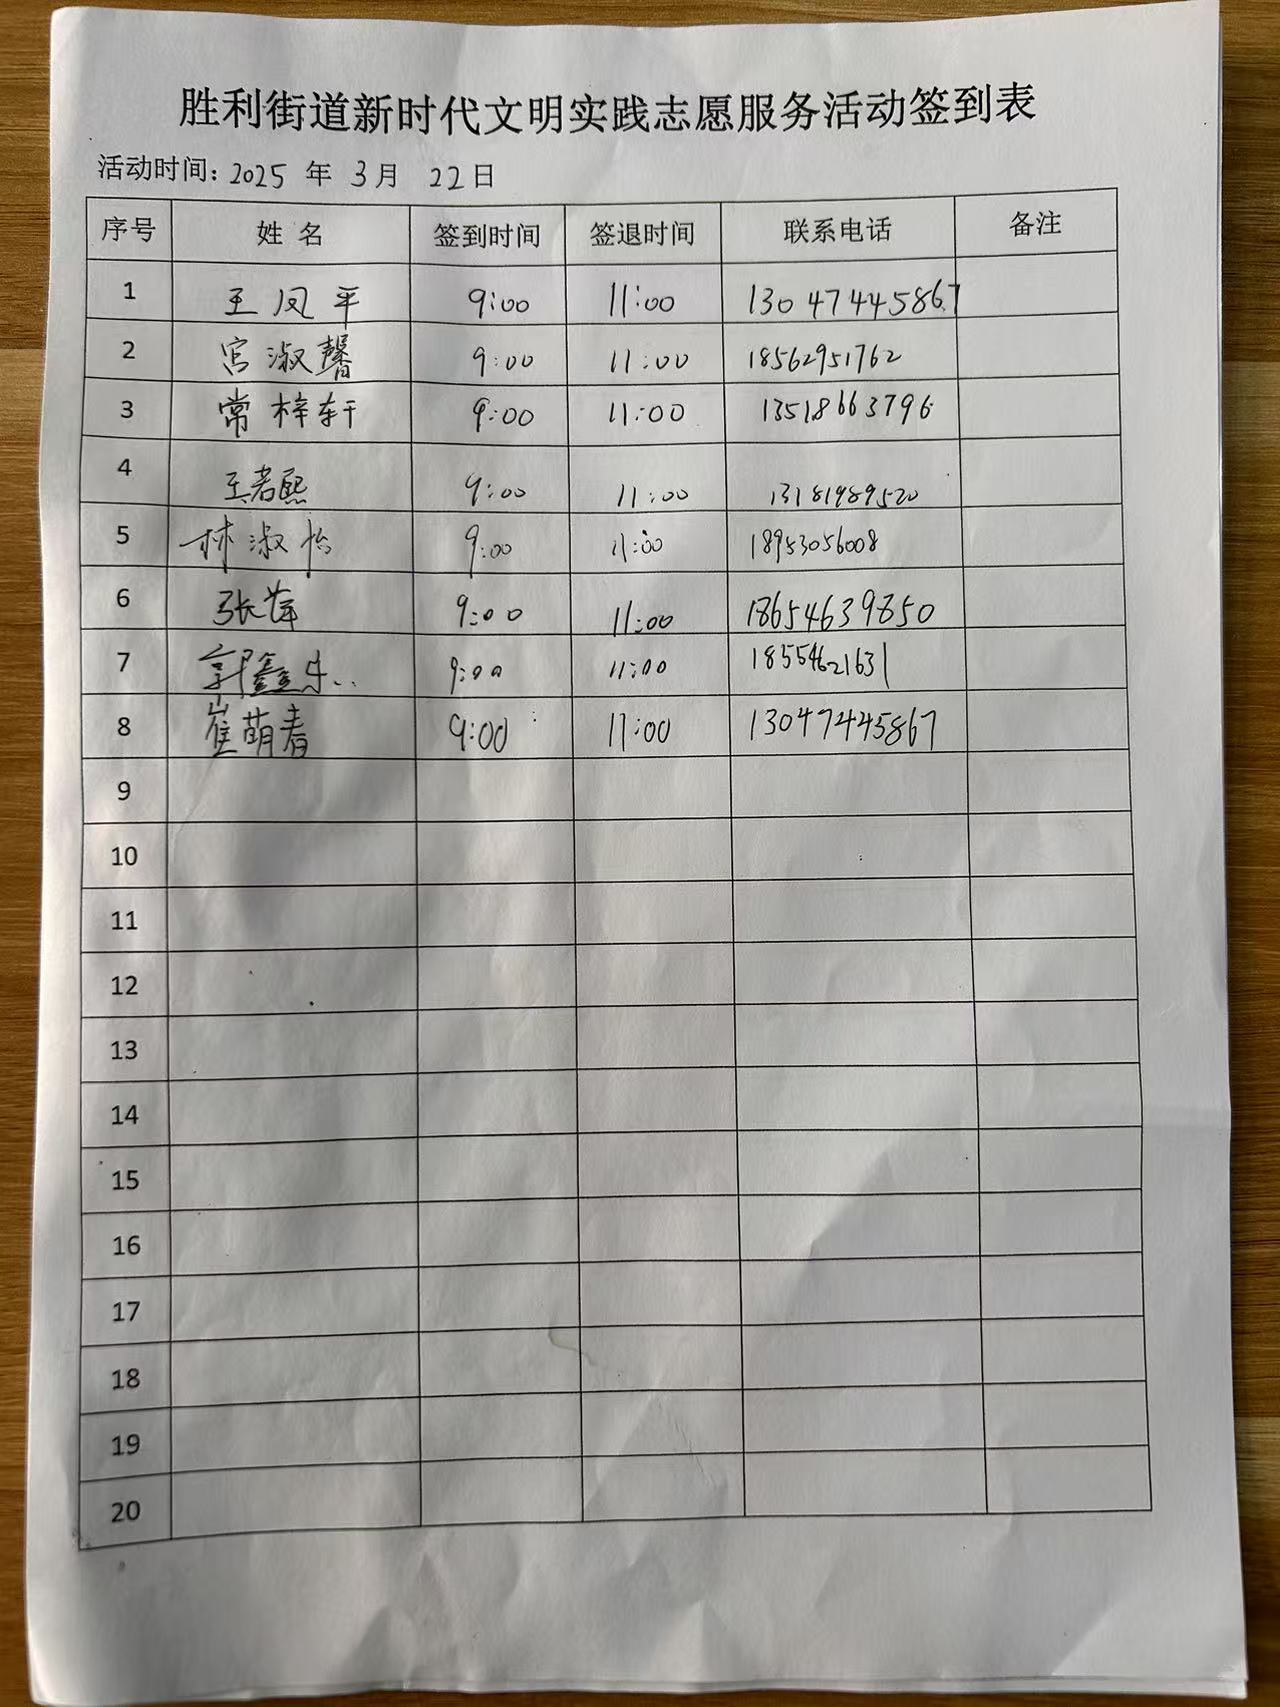 胜利街道新时代文明实践志愿服务活动签到表
活动时间: 2025 年 3月 22日
序号 姓 名 签到时间 签退时间 联系电话 备注
1 王凤平 9:00 11:00 13047445867
2 宫淑馨 9:00 11:00 18562951762
3 常梓轩 9:00 11:00 13518663796
4 王若熙 9:00 11:00 13181989520
5 林淑怡 9:00 11:00 18953056008
6 张萍 9:00 11:00 18654639850
7 郭鑫乐 9:00 11:00 18554621631
8 崔萌春 9:00 11:00 13047445867
9
10
11
12
13
14
15
16
17
18
19
20